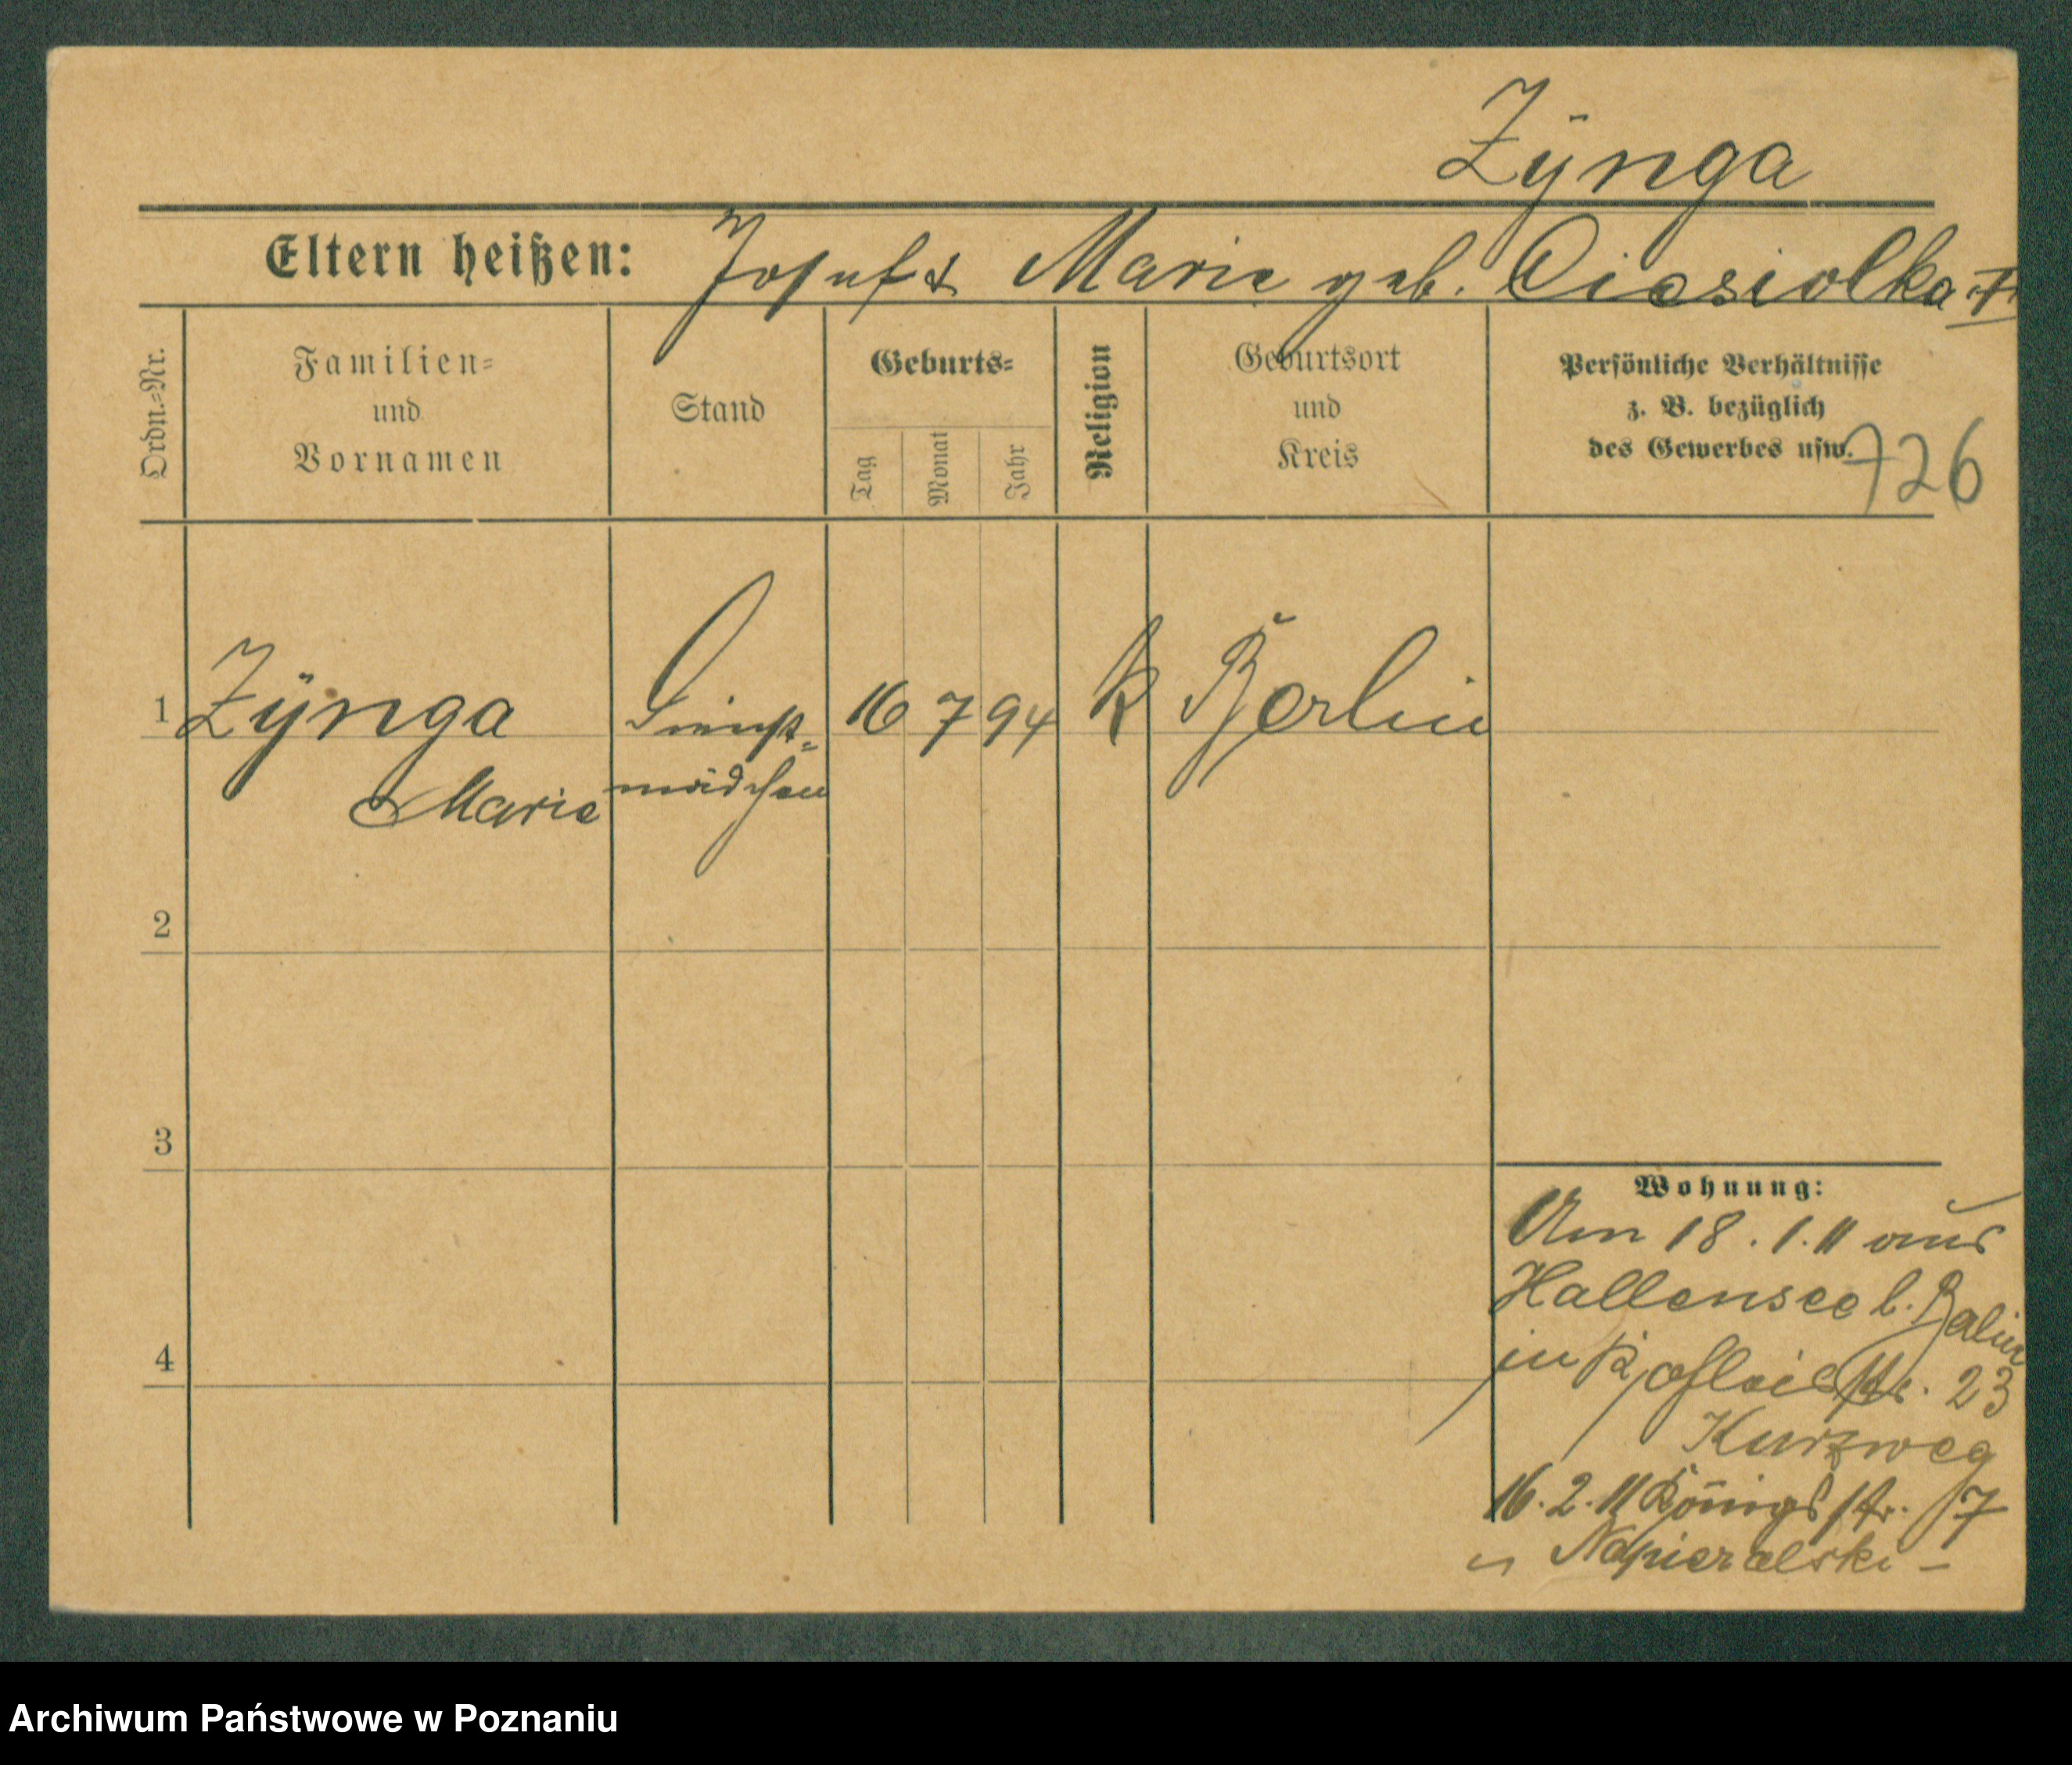 Zÿnga
Eltern heißen: Josef & Marie geb. Ciesiolka †
Ordn.=Nr.
Familien=
und
Vornamen
Stand
Geburts=
Tag
Monat
Jahr
Religion
Geburtsort
und
Kreis
Persönliche Verhältnisse
z. B. bezüglich
des Gewerbes usw.
726
1 Zÿnga Dienst= 16 7 94 K Berlin
Marie mädchen
2
3
4
Wohnung:
Am 18. 1. 11 aus
Hallensee b. Berlin
in 23
Kurzweg
16. 2. 11 Königstr. 17
Napieralski –
Archiwum Państwowe w Poznaniu